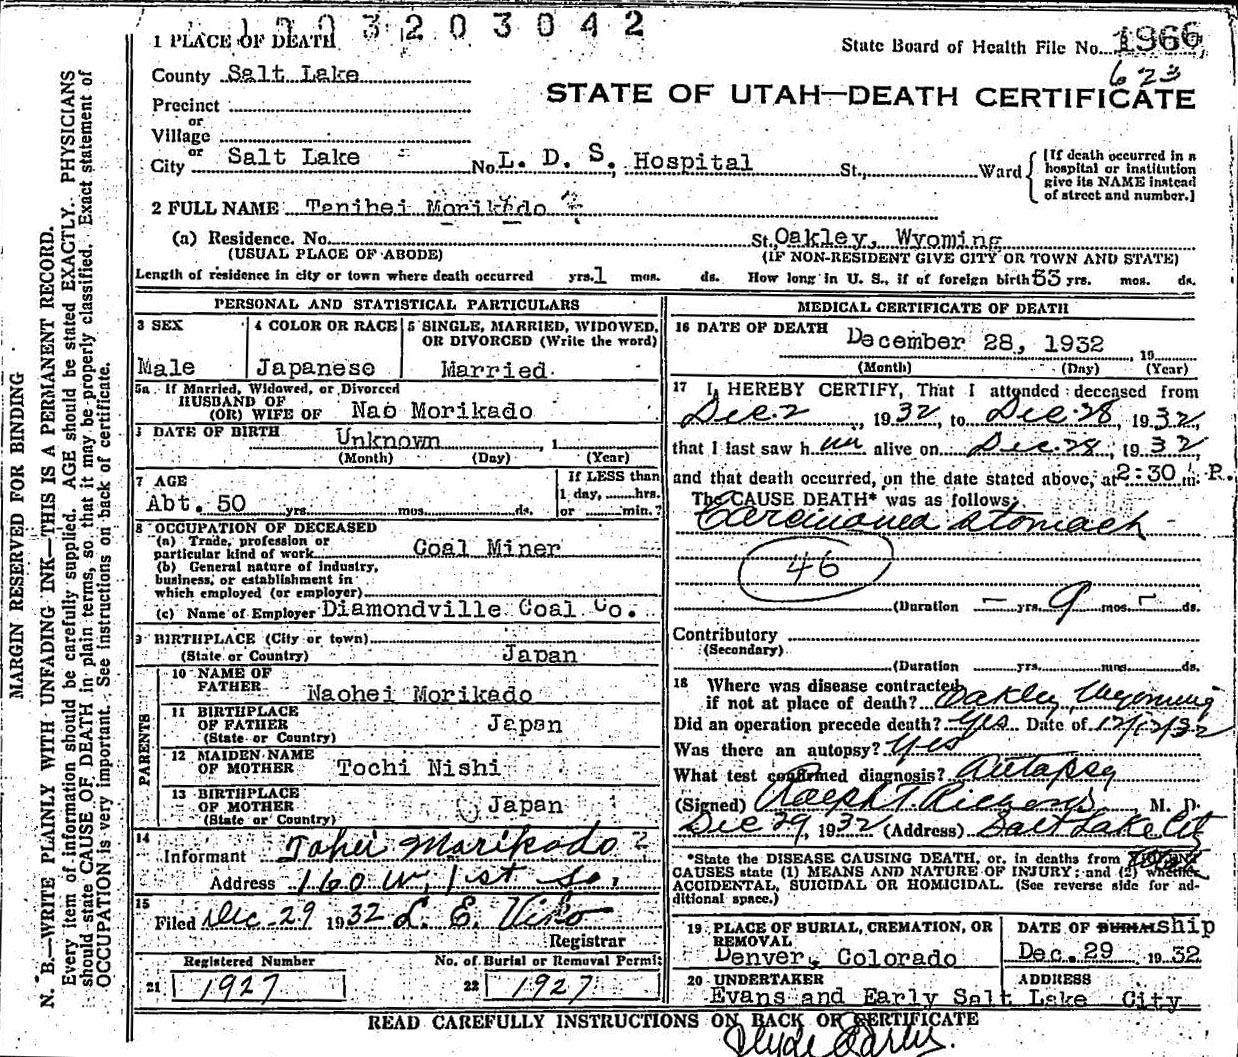 1 1 0 3 2 0 3 0 4 2
1 PLACE OF DEATH
State Board of Health File No. 1966
623
County Salt Lake
STATE OF UTAH—DEATH CERTIFICATE
Precinct
or
Village
or
City Salt Lake No. L. D. S. Hospital St., Ward
[If death occurred in a hospital or institution give its NAME instead of street and number.]
2 FULL NAME Tenihei Morikado
(a) Residence. No. St., Oakley, Wyoming
(USUAL PLACE OF ABODE) (IF NON-RESIDENT GIVE CITY OR TOWN AND STATE)
Length of residence in city or town where death occurred yrs. 1 mos. ds. How long in U. S., if of foreign birth yrs. mos. ds.
PERSONAL AND STATISTICAL PARTICULARS
3 SEX
Male
4 COLOR OR RACE
Japanese
5 SINGLE, MARRIED, WIDOWED, OR DIVORCED (Write the word)
Married
5a If Married, Widowed, or Divorced
HUSBAND OF
(OR) WIFE OF Nao Morikado
DATE OF BIRTH Unknown 1
(Month) (Day) (Year)
7 AGE
Abt. 50 yrs. mos. ds.
If LESS than
1 day, hrs.
or min.?
8 OCCUPATION OF DECEASED
(a) Trade, profession or
particular kind of work Coal Miner
(b) General nature of industry,
business, or establishment in
which employed (or employer)
(c) Name of Employer Diamondville Coal Co.
9 BIRTHPLACE (City or town)
(State or Country) Japan
PARENTS
10 NAME OF
FATHER Naohei Morikado
11 BIRTHPLACE
OF FATHER Japan
(State or Country)
12 MAIDEN NAME
OF MOTHER Tochi Nishi
13 BIRTHPLACE
OF MOTHER Japan
(State or Country)
14
Informant Tahei Morikado ?
Address 160 W. 1st So.
15
Filed Dec 29 1932 L. E.
Registrar
Registered Number No. of Burial or Removal Permit
21 1927 22 1927
MEDICAL CERTIFICATE OF DEATH
16 DATE OF DEATH December 28, 1932, 19
(Month) (Day) (Year)
17 I, HEREBY CERTIFY, That I attended deceased from
Dec. 2, 1932, to Dec. 28, 1932,
that I last saw him alive on Dec. 28, 1932,
and that death occurred, on the date stated above, at 2:30 m. P.
The CAUSE DEATH* was as follows:
Carcinoma stomach
46
(Duration – yrs. 9 mos. – ds.
Contributory
(Secondary)
(Duration yrs. mos. ds.
18 Where was disease contracted
if not at place of death? Oakley, Wyoming
Did an operation precede death? Yes Date of 12/12/32
Was there an autopsy? Yes
What test confirmed diagnosis? Autopsy
(Signed) Ralph T. M. D.
Dec 29, 1932 (Address) Salt Lake City
*State the DISEASE CAUSING DEATH, or, in deaths from VIOLENT
CAUSES state (1) MEANS AND NATURE OF INJURY; and (2) whether
ACCIDENTAL, SUICIDAL OR HOMICIDAL. (See reverse side for additional space.)
19 PLACE OF BURIAL, CREMATION, OR REMOVAL
Denver, Colorado
DATE OF BURIAL ship
Dec. 29 1932
20 UNDERTAKER ADDRESS
Evans and Early Salt Lake City
READ CAREFULLY INSTRUCTIONS ON BACK OF CERTIFICATE
Clyde Early.
MARGIN RESERVED FOR BINDING
N. B.—WRITE PLAINLY WITH UNFADING INK—THIS IS A PERMANENT RECORD.
Every item of information should be carefully supplied. AGE should be stated EXACTLY. PHYSICIANS
should state CAUSE OF DEATH in plain terms, so that it may be properly classified. Exact statement of
OCCUPATION is very important. See instructions on back of certificate.